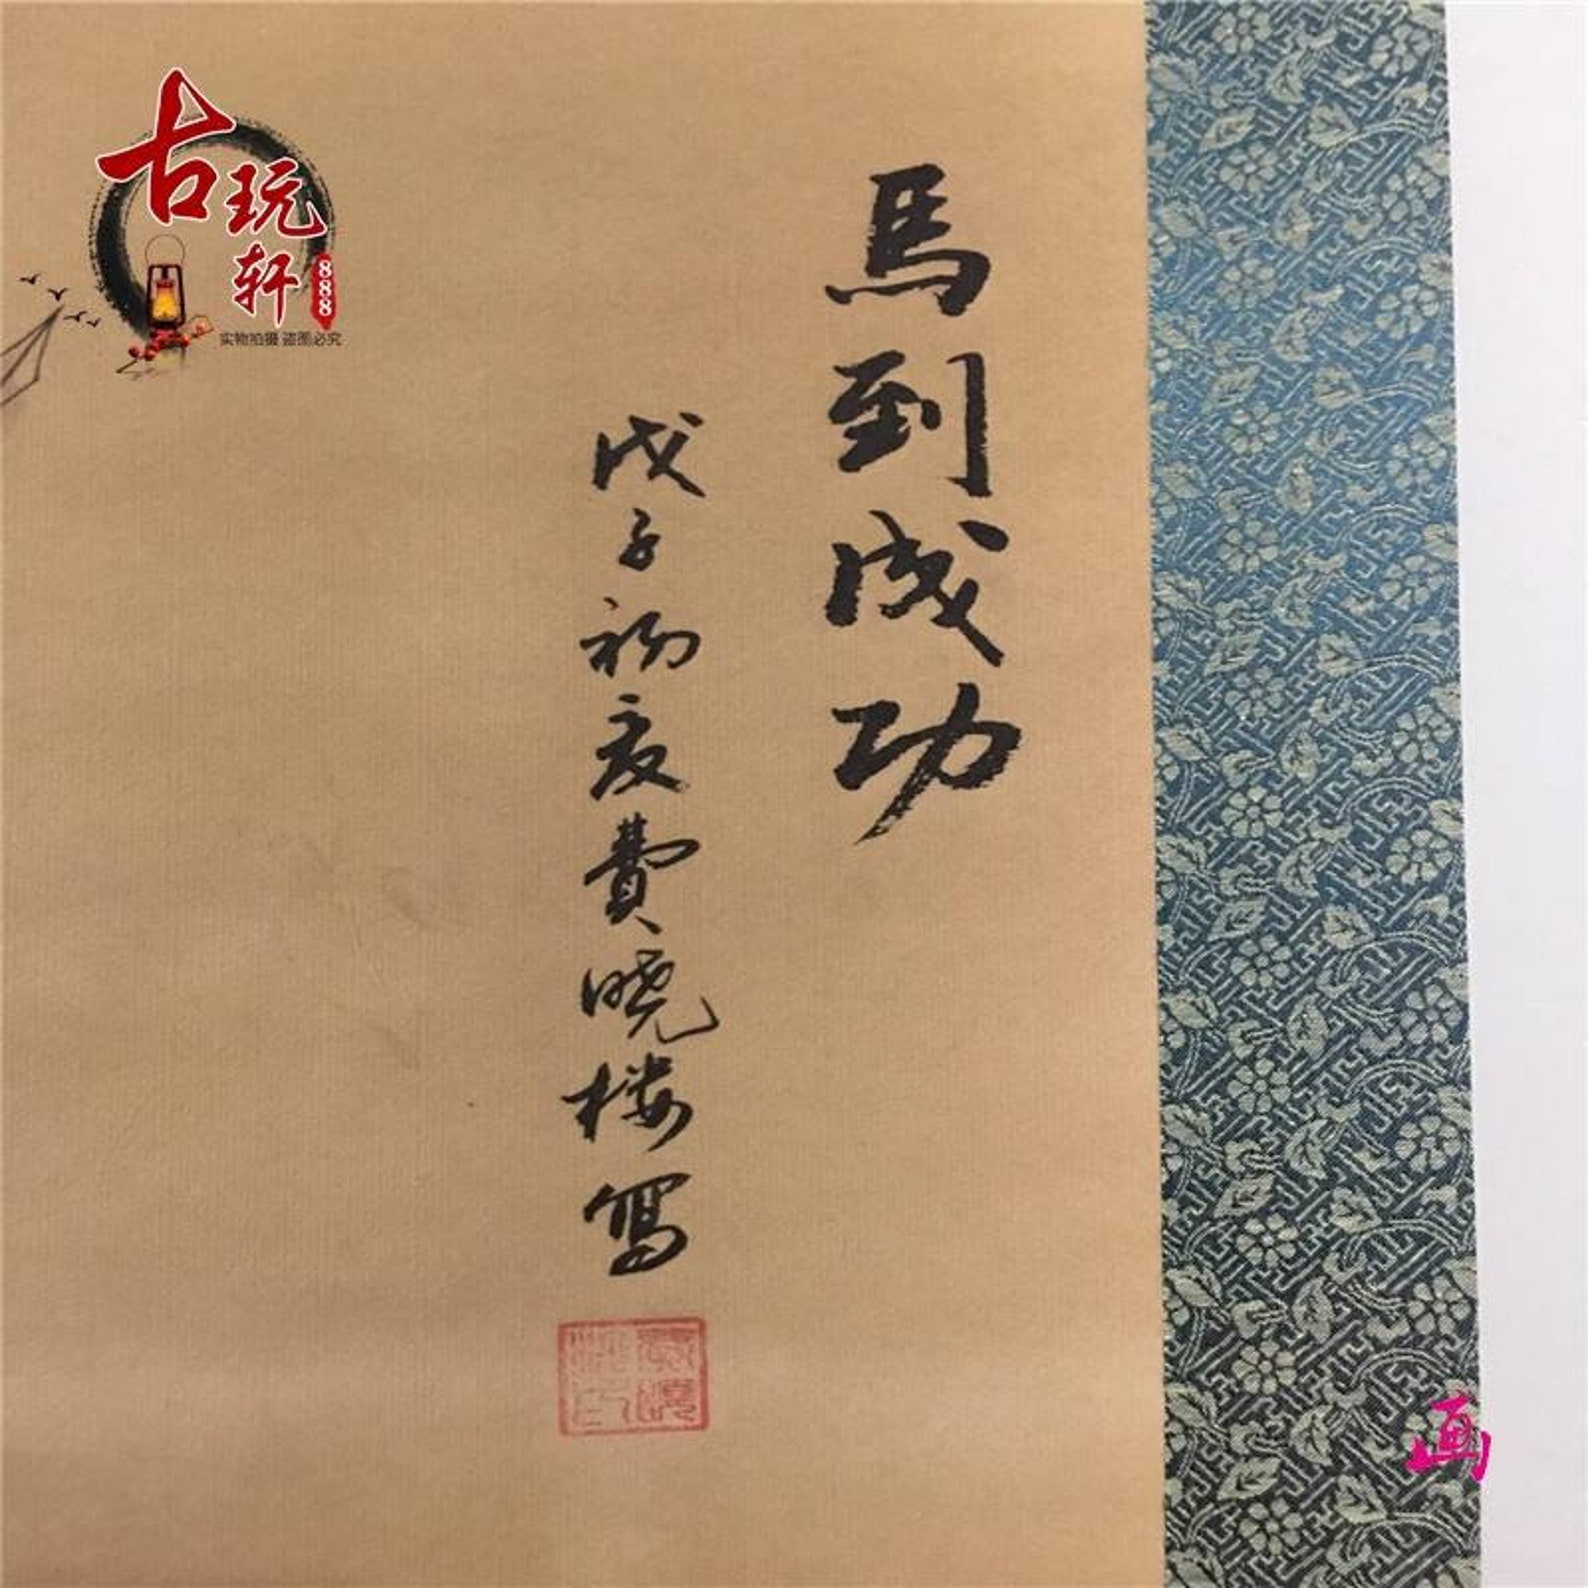 馬到成功
戊子初夏費曉楼寫
古玩轩
8888
实物拍摄 盗图必究
画